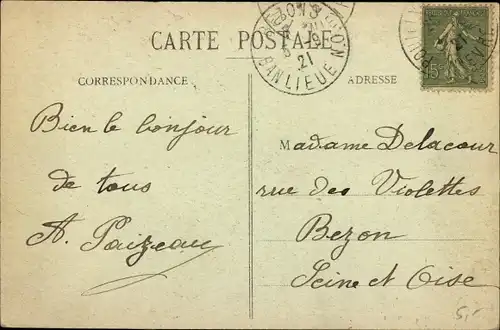 CARTE POSTALE
BANLIEUE
21
15
CORRESPONDANCE
ADRESSE
Bien le bonjour
de tous
A. Paizeau
Madame Delacour
rue des Violettes
Bezon
Seine et Oise
5,-